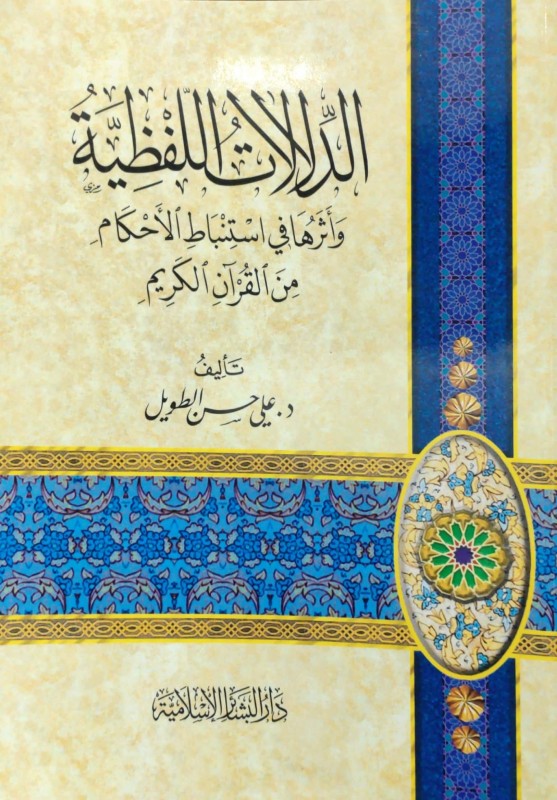 الدِّلَالَاتُ اللَّفْظِيَّةُ
وَأَثَرُهَا فِي اسْتِنْبَاطِ الْأَحْكَامِ
مِنَ الْقُرْآنِ الْكَرِيمِ
تَأليفُ
د. علي حسن الطويل
دَارُ البَشَائِرِ الإِسْلَامِيَّة